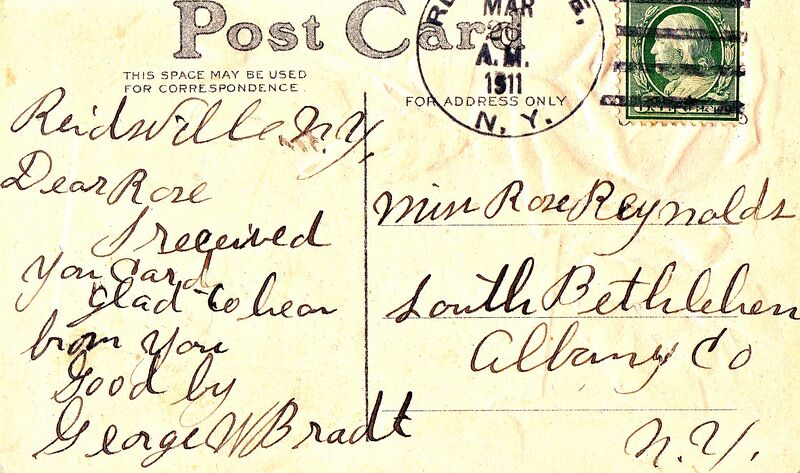 Post Card
THIS SPACE MAY BE USED
FOR CORRESPONDENCE.
FOR ADDRESS ONLY
MAR
20
A.M.
1911
N. Y.
Reidsville N.Y.
Dear Rose
I received
you Card
glad to hear
from you
Good by
George W Bradt
Miss Rose Reynolds
South Bethlehem
Albany Co
N.Y.